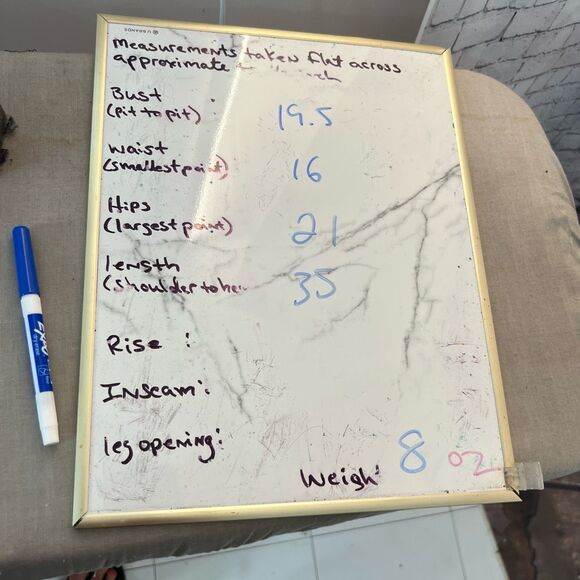 U BRANDS
Measurements taken flat across
approximate
Bust
(pit to pit) 19.5
waist
(smallest point) 16
Hips
(largest point) 21
length
(shoulder to 35
Rise :
Inseam:
leg opening:
Weigh: 8 oz
EXPO